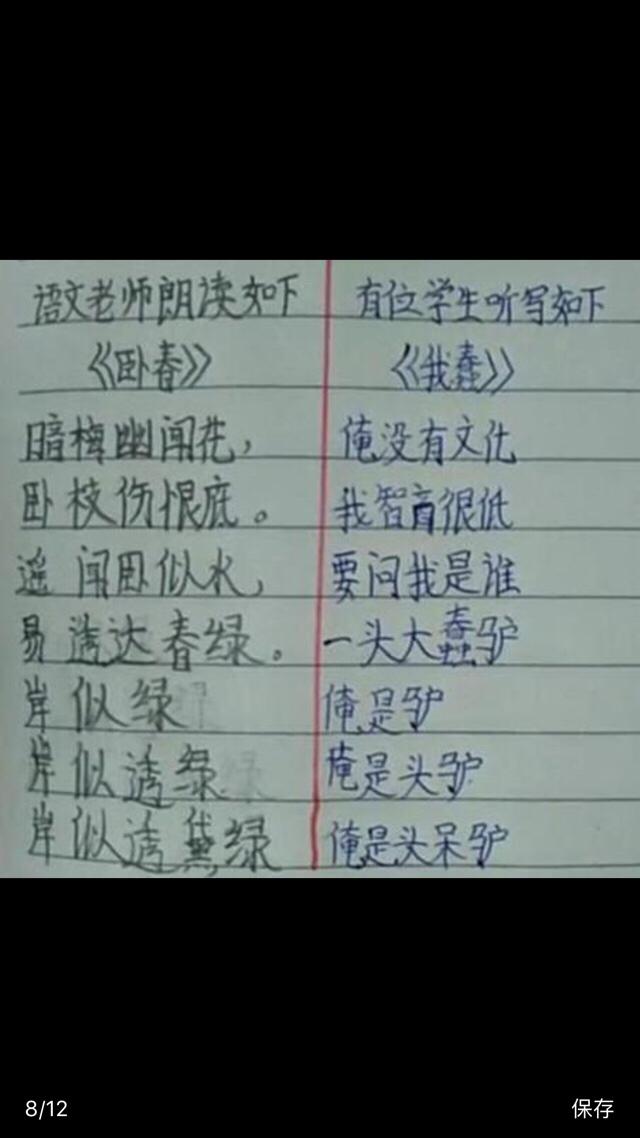 语文老师朗读如下
《卧春》
暗梅幽闻花，
卧枝伤恨底。
遥闻卧似水，
易透达春绿。
岸似绿
岸似透绿
岸似透黛绿
有位学生听写如下
《我蠢》
俺没有文化
我智商很低
要问我是谁
一头大蠢驴
俺是驴
俺是头驴
俺是头呆驴
8/12
保存